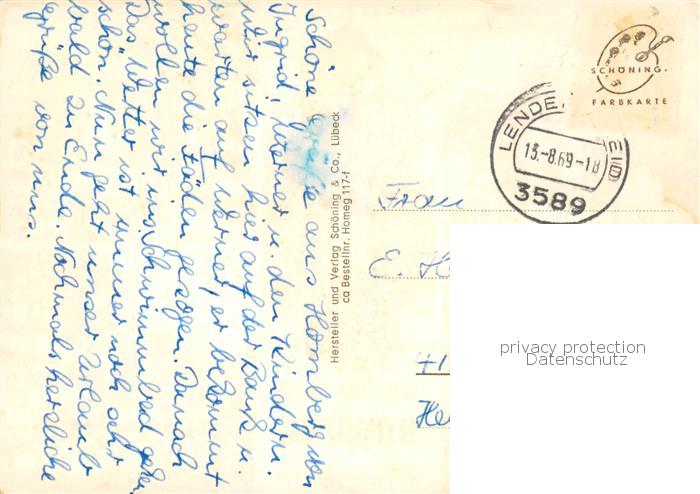 Schöne Grüße aus Homberg von
Ingrid, Werner u. den Kindern.
Wir sitzen hier auf der Bank u.
warten auf Werner, er bekommt
heute die Fäden gezogen. Danach
wollen wir ins Schwimmbad gehen.
Das Wetter ist immer noch sehr
schön. Nun geht unser Urlaub
bald zu Ende. Nochmals herzliche
Grüße von uns.
Hersteller und Verlag Schöning & Co., Lübeck
ca Bestellnr. Homeg 117-f
SCHÖNING
FARBKARTE
LENDE
EID
13.-8.69-18
3589
Frau
E. He
41
He
privacy protection
Datenschutz